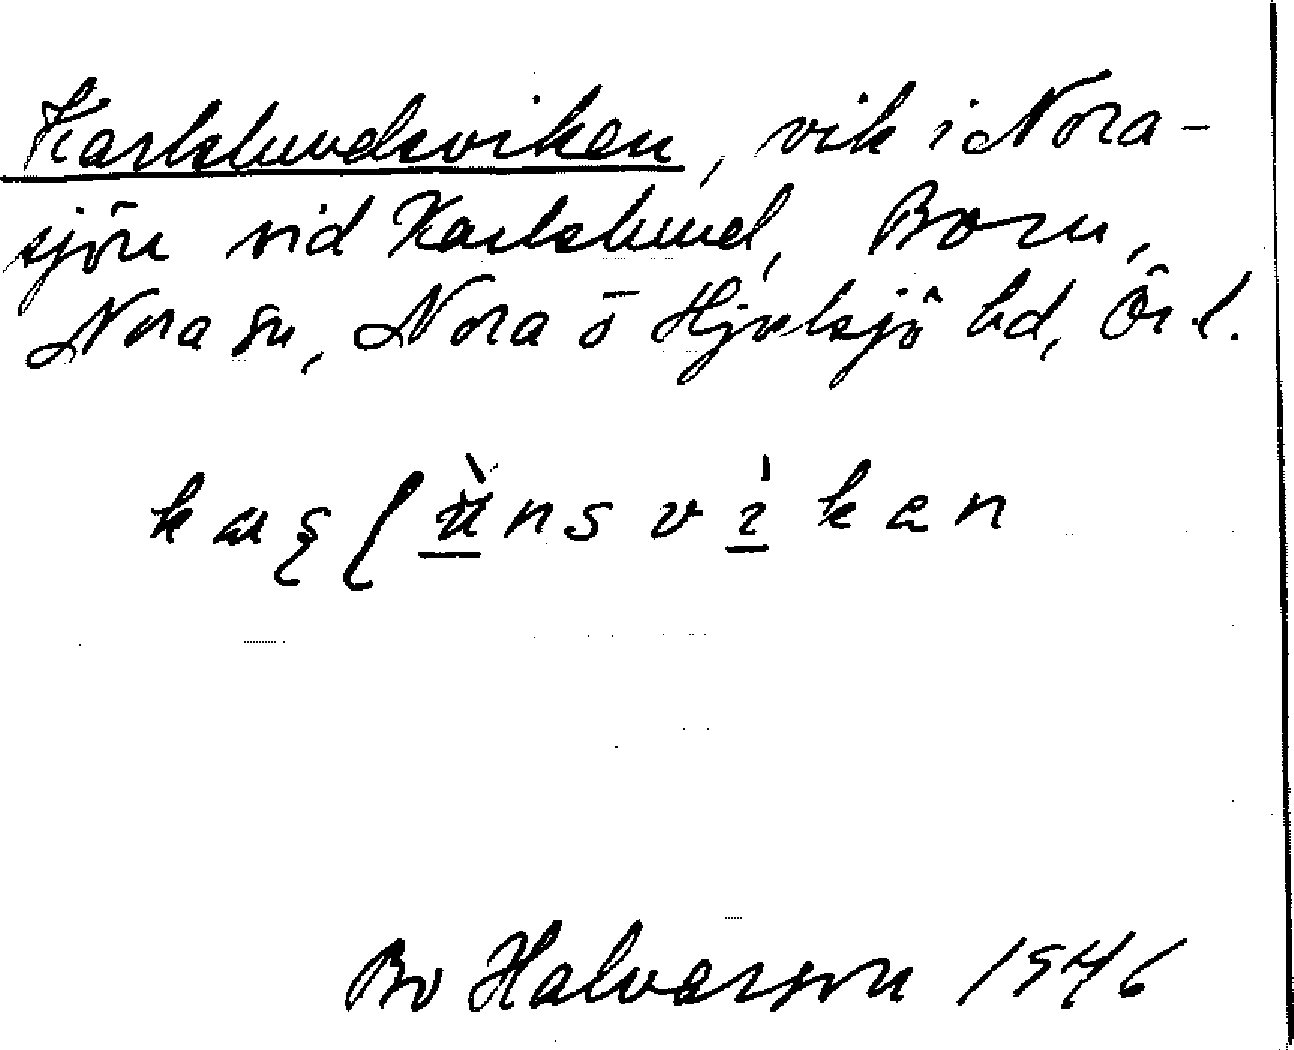 Karlslundsviken, vik i Nora-
sjön vid Karlslund, Born,
Nora sn, Nora o Hjulsjö bd, Ör l.
Bo Halvarson 1946